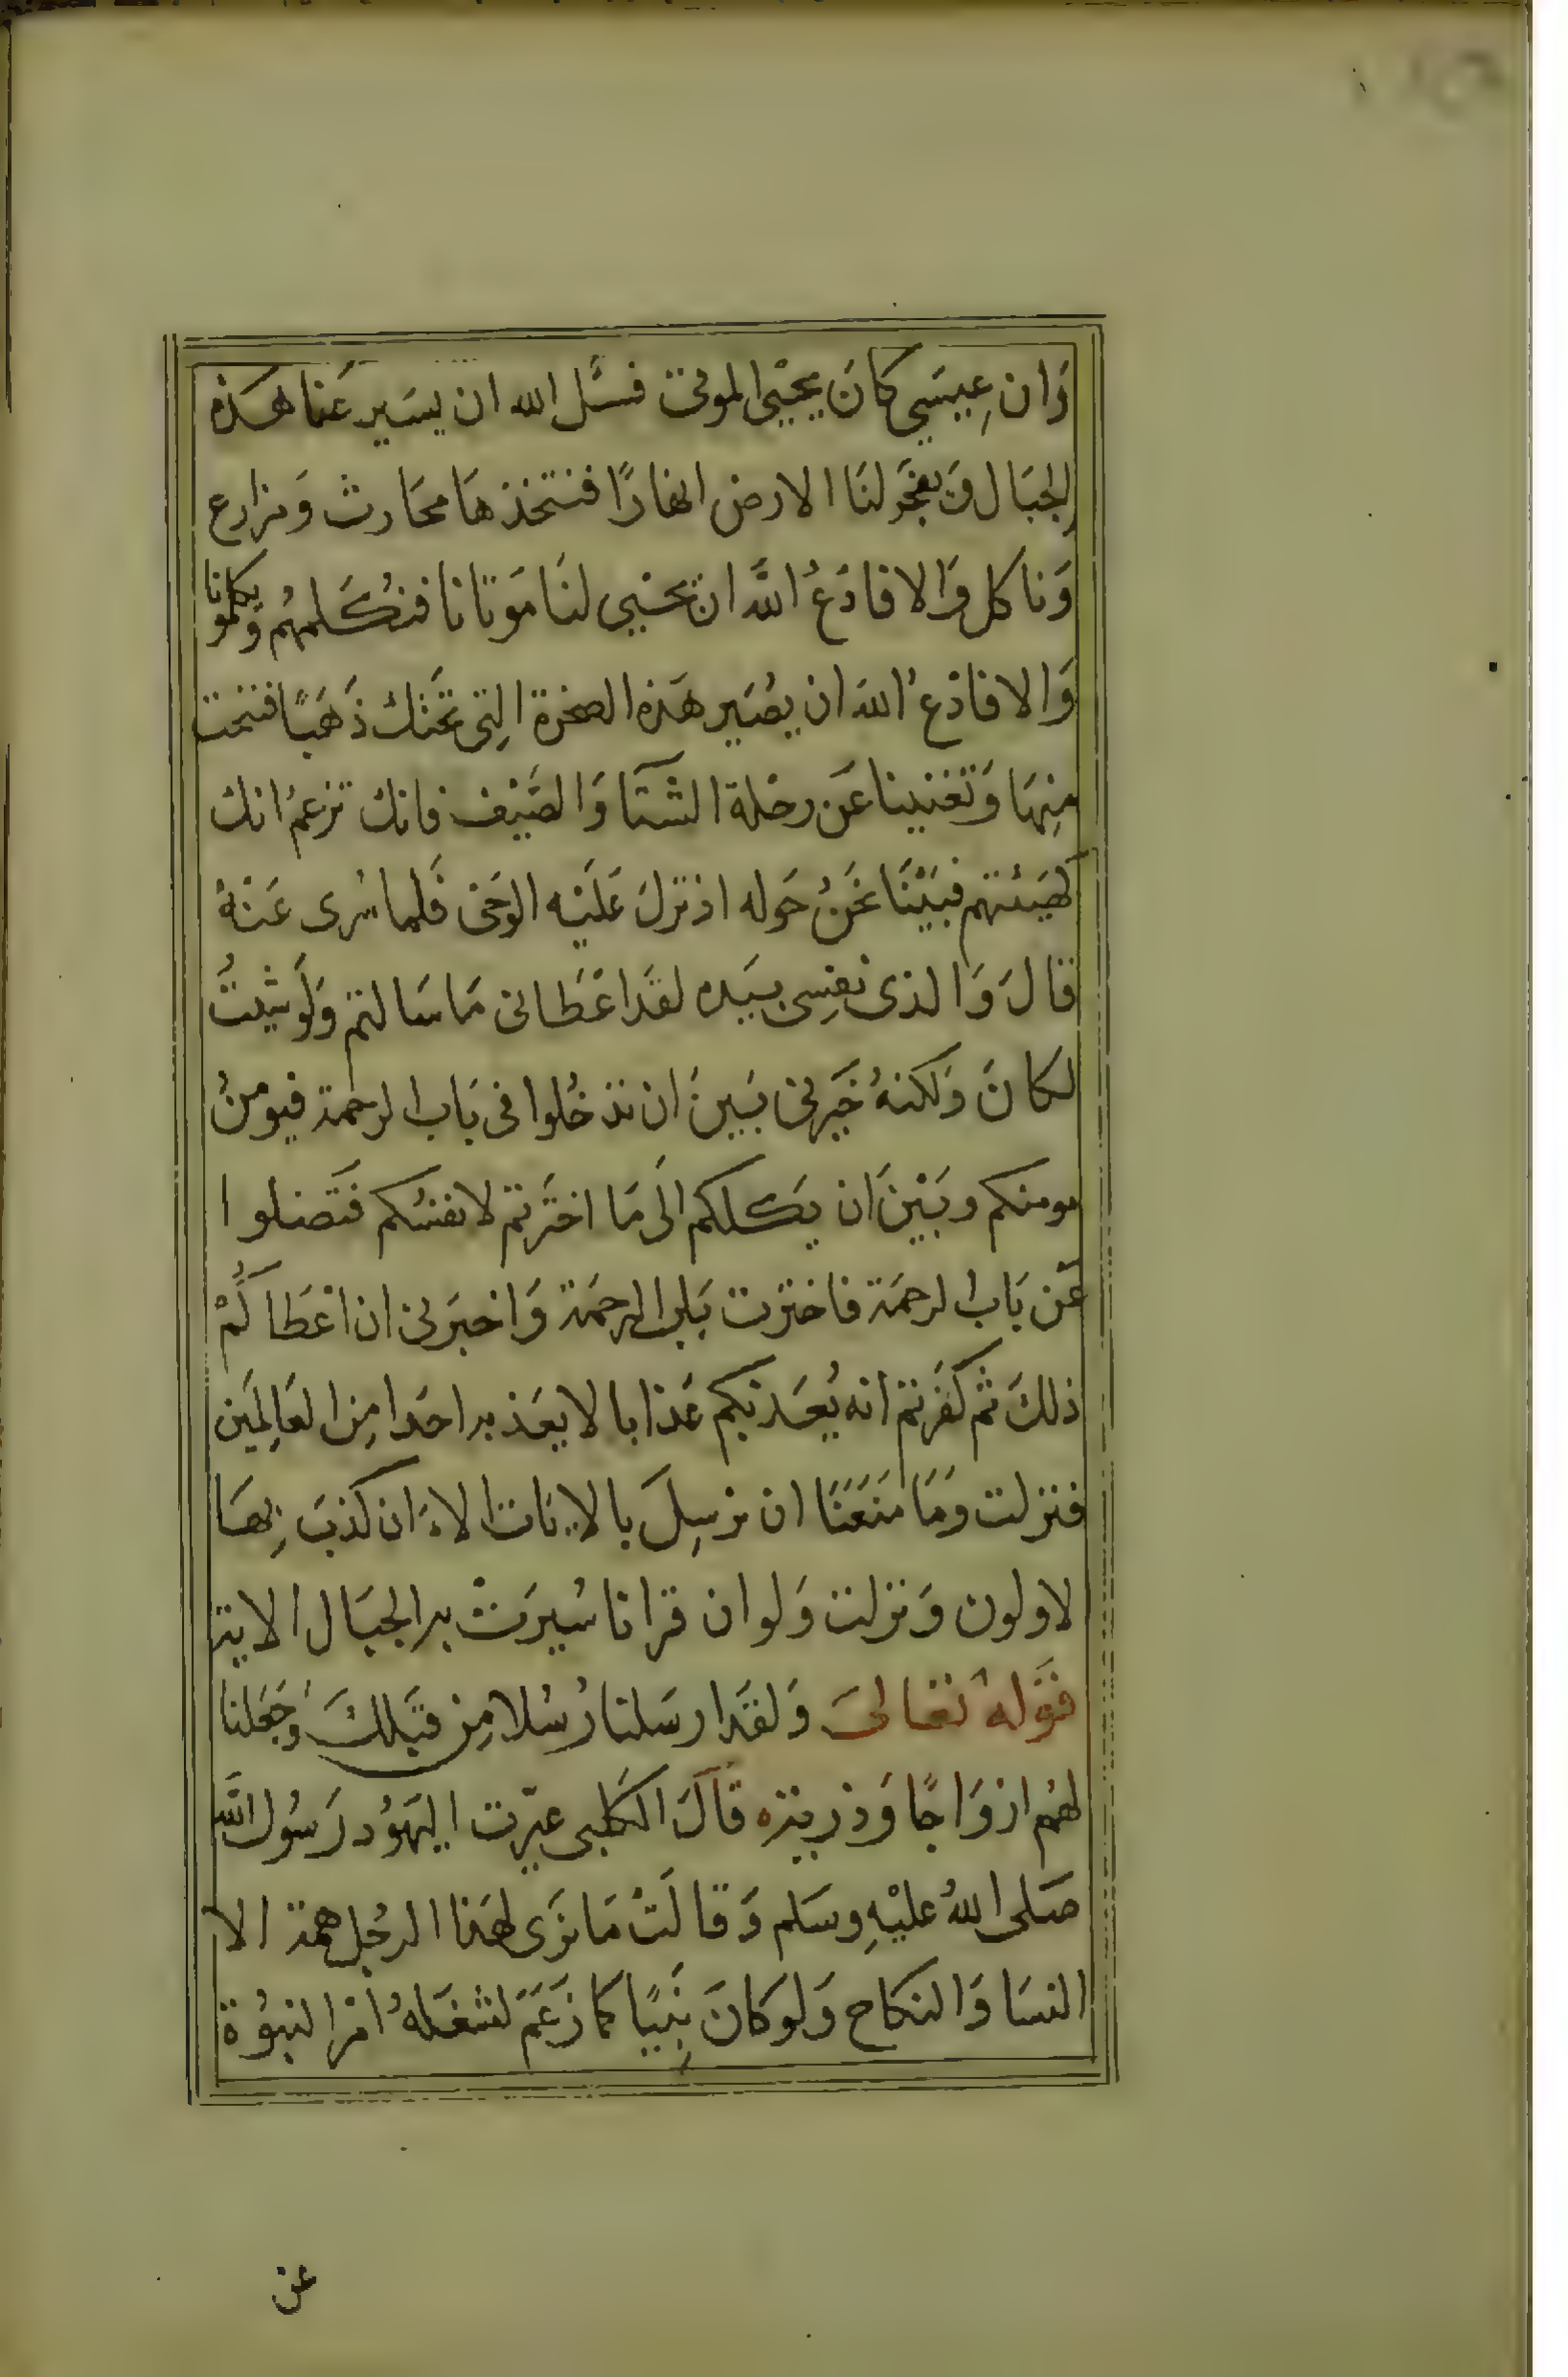 وَان عِيسَي كَانَ يحيْي الموتى فسَّل الله ان يسَير عَنا هَذه
الجبَال وَيفجَر لنَا الارض انهارًا فنتخذهَا محَارث وَمزارع
وَناكل وَالا فادَعُ اللَّه ان يحْيي لنَا مَوتانا فنُكَلمهُم وَيكلمونا
وَالا فادْعُ الله ان يصُيَر هَذه الصخرة التِى تحَتك ذَهَبًا فننحت
مِنهَا وَتغنينا عَن رحْلة الشتَآ وَالصَيْف فانك تزعمُ انك
كهَيئتهم فبَيْنَا نحَنُ حَوله اذ نزلَ عَليْه الوَحى فَلما سُرى عَنْهُ
قالَ وَالذى نفسِى بيَده لقَد اعْطَانى مَا سَالتم وَلَو شيْتُ
لكانَ وَلكنهُ خَيرنى بَين ان تدخُلوا فى بَاب الرحمة فيومنُ
مومنكم وبَيْنَ ان يَكلكم الَى مَا اخترَتم لانفسُكم فتَضلوا
عَن بَاب الرحمَة فاخترت بَاب الرحمَة وَاخبرَنى ان اعْطَاكُمْ
ذلكَ ثم كفَرتم انه يُعَذبكم عَذابا لا يعَذبه احَدا مِن العَالِمَين
فنزلت وَمَا مَنَعَنَا ان نرسِلَ بالايات الا ان كذبَ بِهَا
لاولون وَنزلت وَلو ان قرانا سُيرَتْ به الجبَال الاية
فقوَلهُ تعَالىَ وَلقَد ارسَلنا رُسُلا مِن قبَلكَ وَجَعَلنا
لهُم ازوَاجًا وَذرية قالَ الكَلبى عيّرت اليَهُود رَسُول اللَّه
صَلى اللهُ عليْهِ وسَلم وَقالَتْ مَا نرَى لهَذا الرجُل همة الا
النسَا وَالنكَاح وَلو كَانَ نِبَيًا كما زعَمَ لشغَلهُ امْر النبُوُة
عن